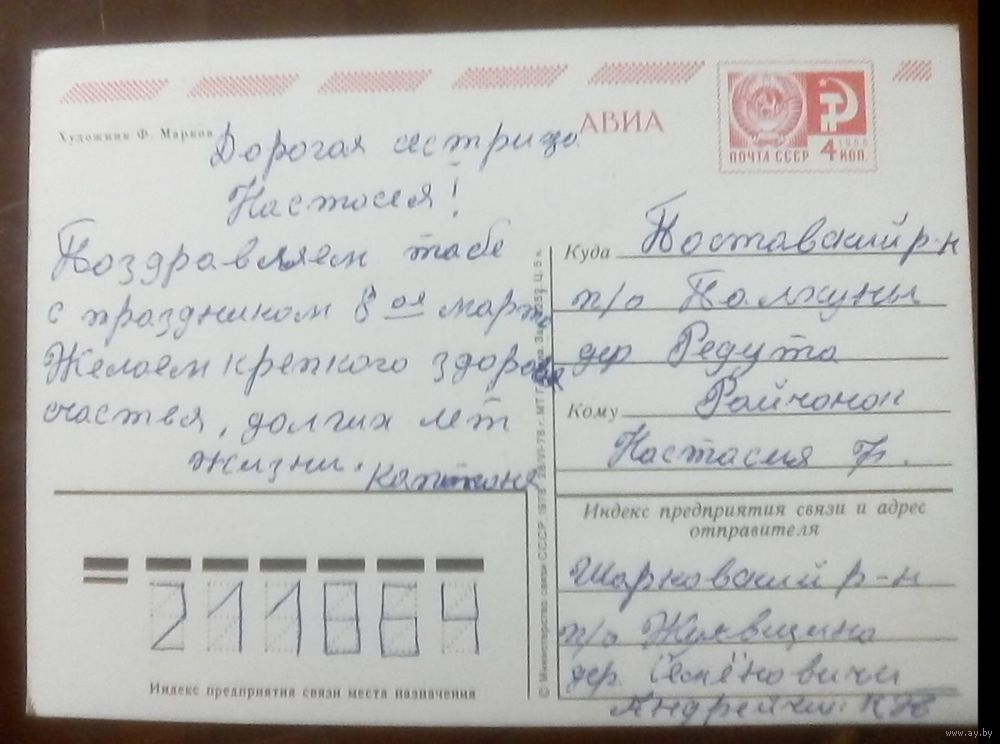 Художник Ф. Марков
АВИА
ПОЧТА СССР 4 КОП.
1966
Дорогая сестрица
Настосея!
Поздравляем табе
с праздником 8 ое марта
Желаем крепкого здоровя
счастья, долгих лет
жизни.
Куда Поставский р-н
п/о Полхуны
дер Редута
Кому Райчонок
Настасия
Индекс предприятия связи и адрес
отправителя
Шарковский р-н
п/о Жуквщина
дер. Семёновичи
Андрейчик
© Министерство связи СССР, 1978
211864
Индекс предприятия связи места назначения
www.ay.by